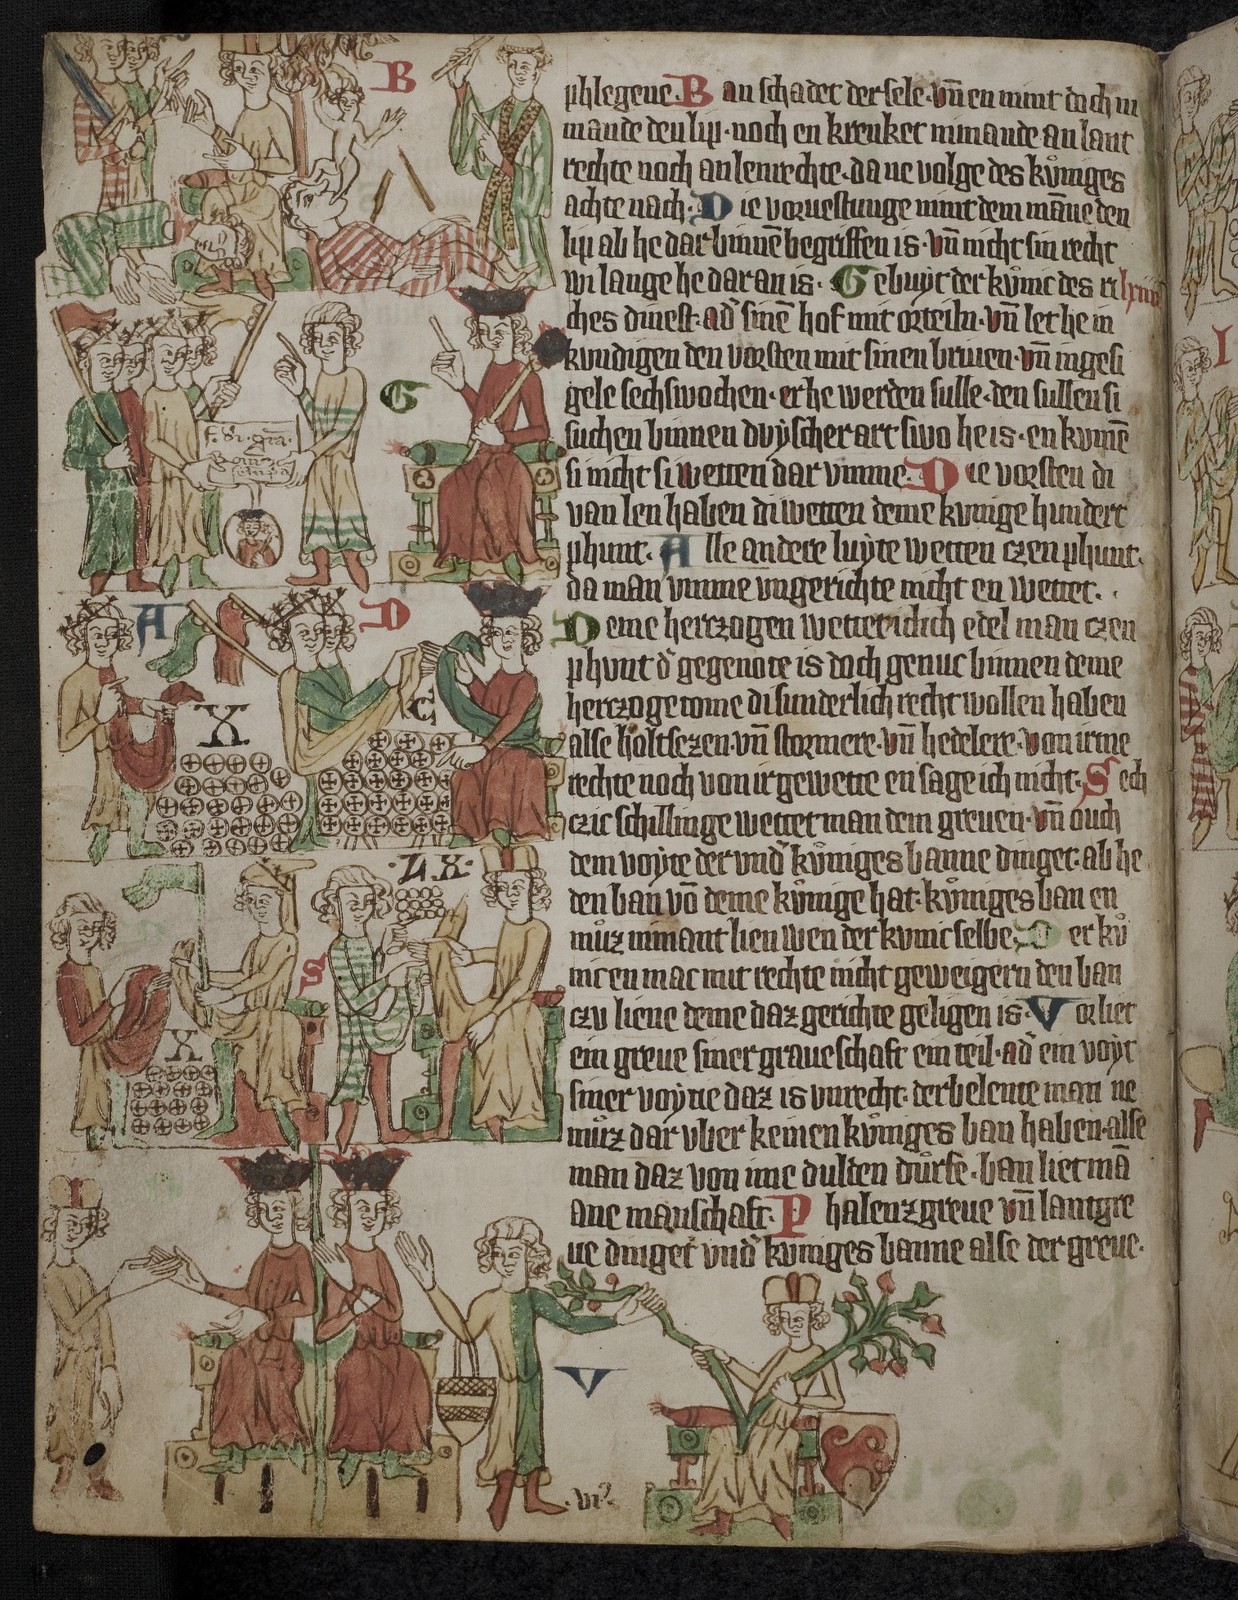 B
phlegene. Ban schadet der sele. vn̄ en nimt doch ni
mande den lip. noch en krenket nimande an lant
rechte noch an lenrechte. da ne volge des kůniges
achte nach. Die voruestunge nimt dem māne den
lip ab he dar binnē begriffen is. vn̄ nicht sin recht
wi lange he dar an is. Gebuyt der kůnic des ri
ches dinest. ad' sinē hof mit orteiln. vn̄ let he in
kundigen den vorsten mit sinen briuen. vn̄ ingesi
gele sechs wochen. er he werden sulle. den sullen si
suchen binnen duyscher art swo he is. en kumē
si nicht si wetten dar vmme. Die vorsten di
van len haben di wetten deme kvnige hundert
phunt. Alle andere luyte wetten czen phunt.
da man vmme vngerichte nicht en wettet.
Deme herczogen wettet iclich edel man czen
phunt d' gegenote is doch genuc binnen deme
herczogetome di sunderlich recht wollen haben
alse holtsezen. vn̄ stormere. vn̄ hedelere. von irme
rechte noch von ir gewette en sage ich nicht. Sech
czic schillinge wettet man dem greuen. vn̄ ouch
dem voyte der vnd' kůniges banne dinget. ab he
den ban vō deme kůnige hat. kůniges ban en
můz nimant lien wen der kvnic selbe. Der ků
nic en mac mit rechte nicht geweigern den ban
czu liene deme daz gerichte geligen is. Vorliet
ein greue siner graueschaft ein teil. ad' ein voyt
siner voytie daz is vnrecht. der belente man ne
můz dar vber keinen kůniges ban haben. alse
man daz von ime dulden důrfe. ban liet mā
ane manschaft. Phalenzgreue vn̄ lantgre
ue dinget vnd' kůniges banne alse der greue.
G
A
D
X
C
S
LX
X
V